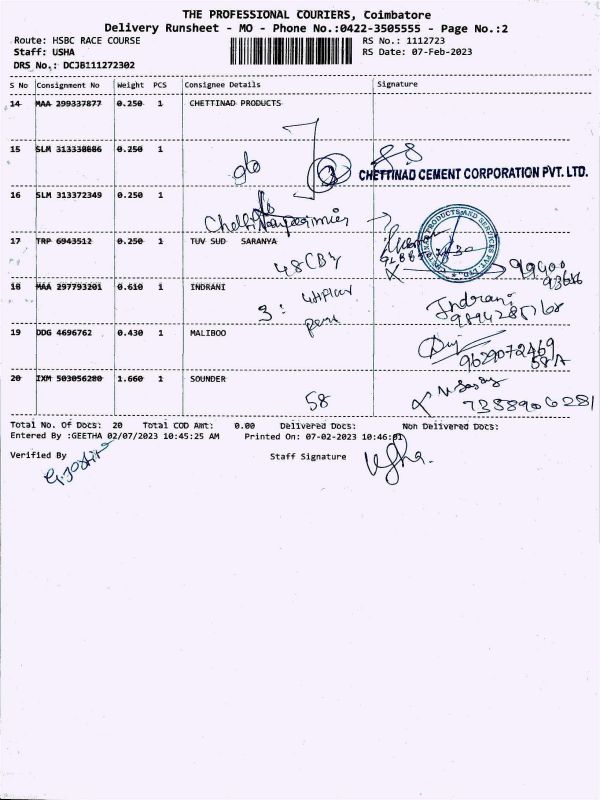 THE PROFESSIONAL COURIERS, Coimbatore
Delivery Runsheet - MO - Phone No.:0422-3505555 - Page No.:2
Route: HSBC RACE COURSE
RS No.: 1112723
Staff: USHA
RS Date: 07-Feb-2023
DRS No.: DCJB111272302
S No Consignment No Weight PCS Consignee Details Signature
14 MAA 299337877 0.250 1 CHETTINAD PRODUCTS
15 SLM 313338686 0.250 1
CHETTINAD CEMENT CORPORATION PVT. LTD.
16 SLM 313372349 0.250 1
17 TRP 6943512 0.250 1 TUV SUD SARANYA
18 MAA 297793201 0.610 1 INDRANI
3:
Indrani
19 DDG 4696762 0.430 1 MALIBOO
9629072469
58A
20 IXM 503056280 1.660 1 SOUNDER
58
7358906281
Total No. Of Docs: 20 Total COD Amt: 0.00 Delivered Docs: Non Delivered Docs:
Entered By :GEETHA 02/07/2023 10:45:25 AM Printed On: 07-02-2023 10:46:01
Verified By Staff Signature
Usha.